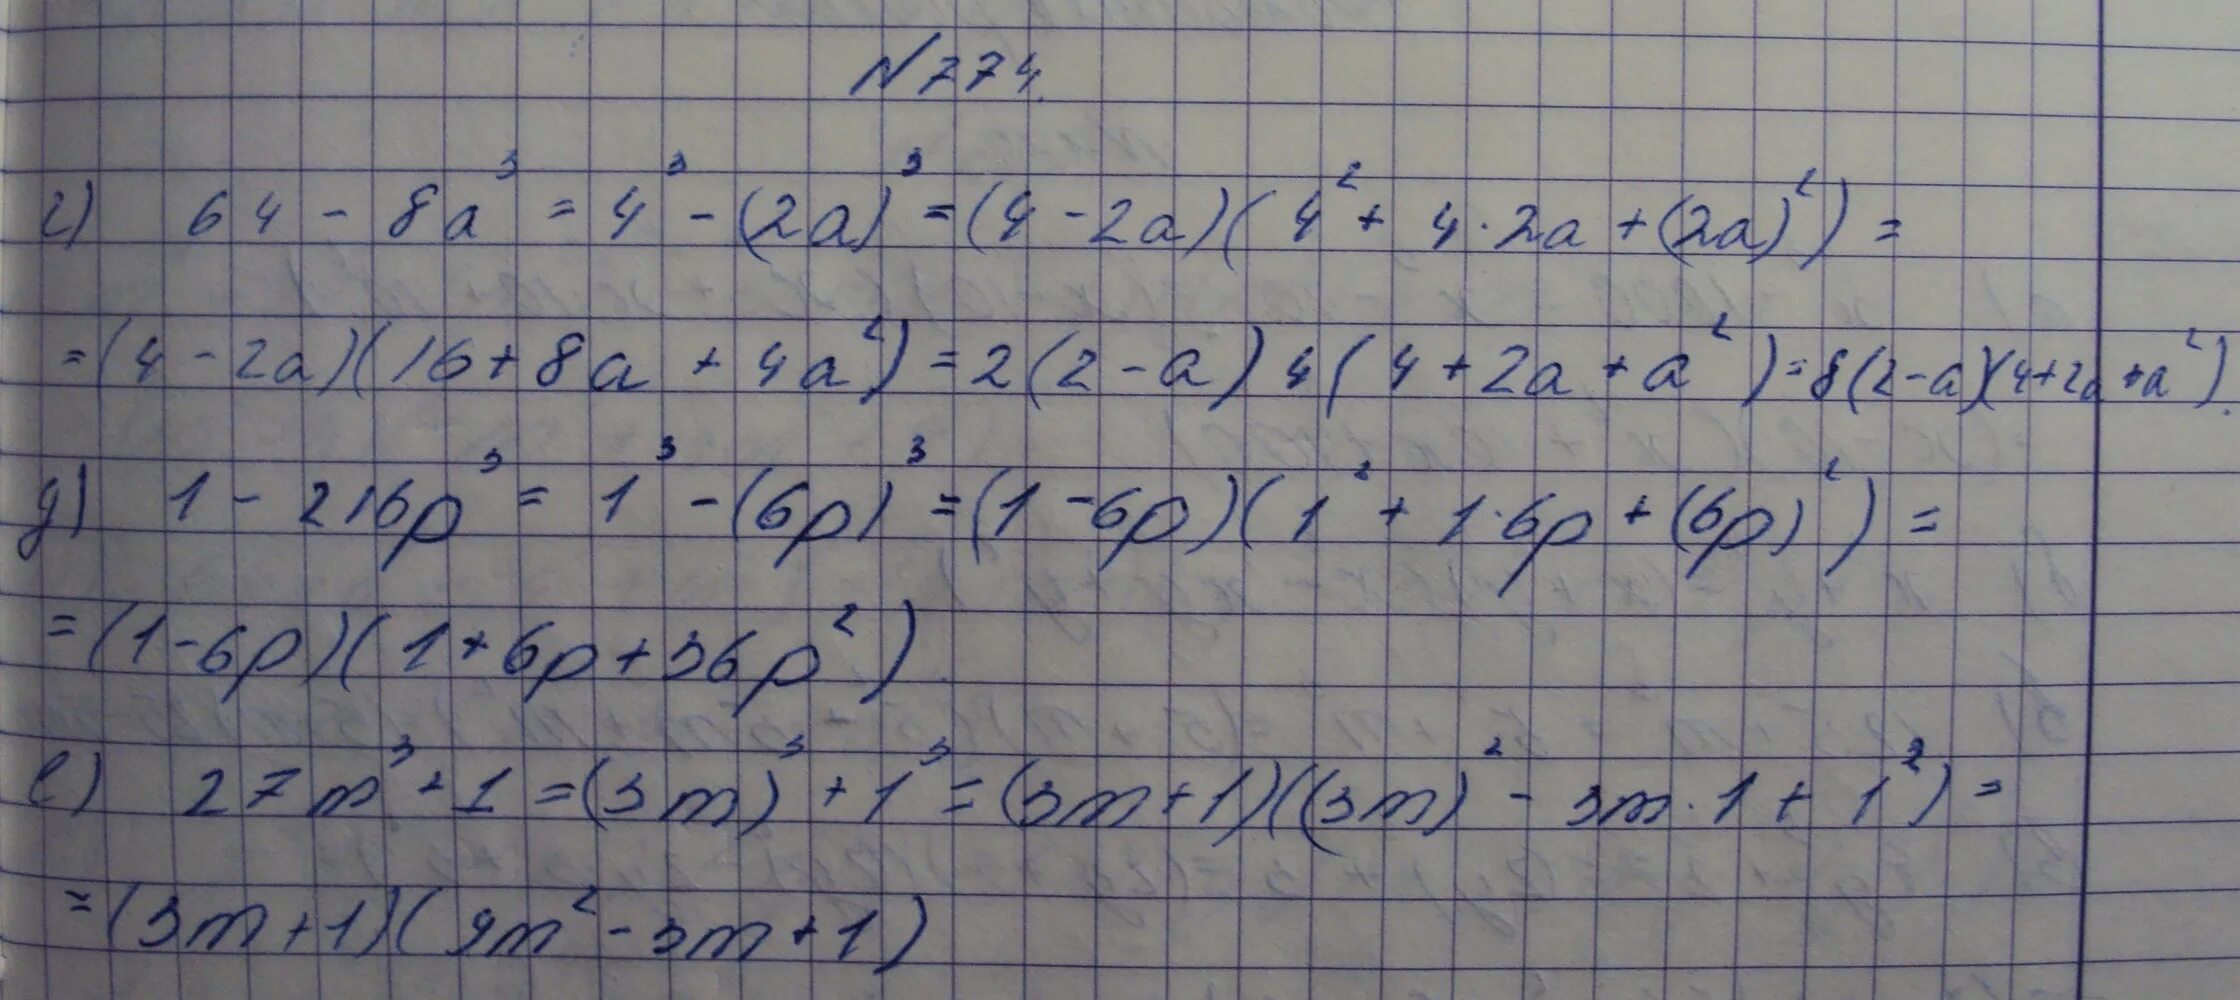 №774.
г) 64 - 8a³ = 4³ - (2a)³ = (4 - 2a)(4² + 4·2a + (2a)²) =
= (4 - 2a)(16 + 8a + 4a²) = 2(2 - a)4(4 + 2a + a²) = 8(2-a)(4+2a+a²).
д) 1 - 216p³ = 1³ - (6p)³ = (1 - 6p)(1² + 1·6p + (6p)²) =
= (1-6p)(1+6p+36p²)
е) 27m³ + 1 = (3m)³ + 1³ = (3m+1)((3m)² - 3m·1 + 1²) =
= (3m+1)(9m² - 3m + 1)